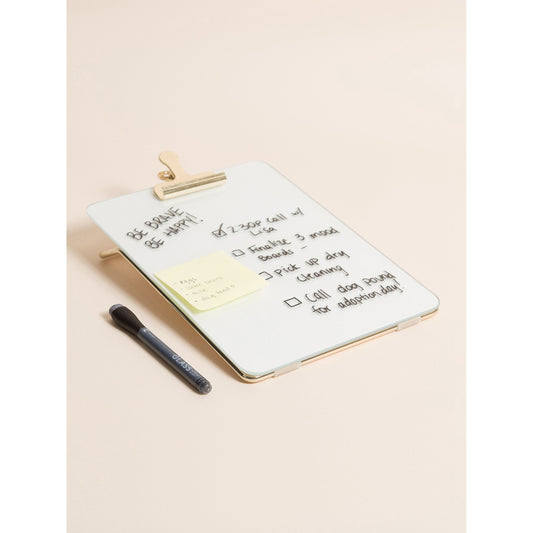 BE BRAVE
BE HAPPY!
2:30p call w/
Lisa
Finalize 3 mood
Boards -
Pick up dry
cleaning
Call dog pound
for adoption day!
- eggs
GLASS